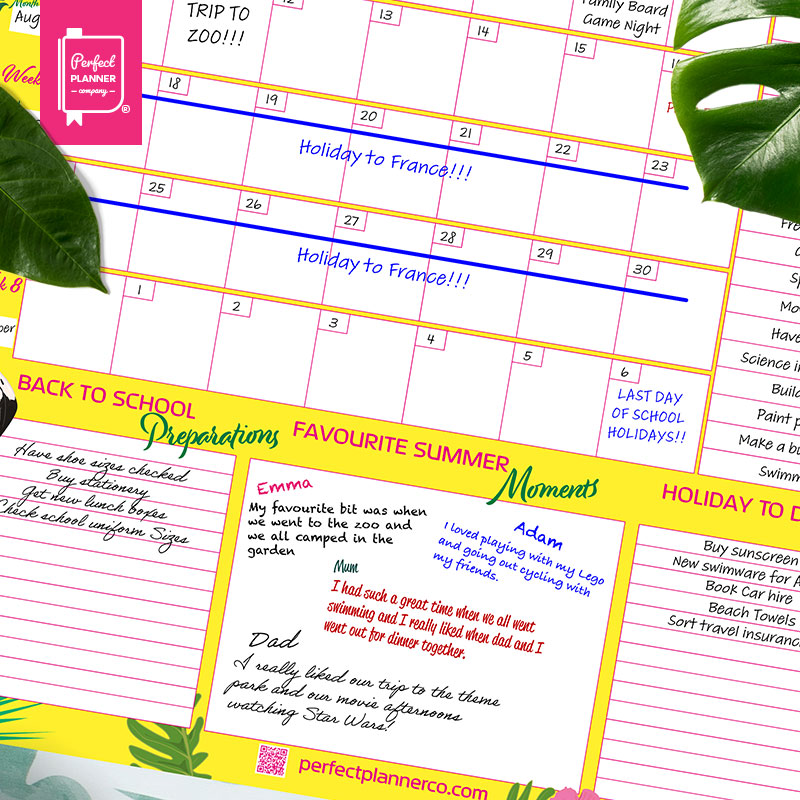 Month
Aug
Perfect
PLANNER
company
®
Week
TRIP TO
ZOO!!!
12
13
14
15
Family Board
Game Night
18
19
20
21
22
23
Holiday to France!!!
25
26
27
28
29
30
Holiday to France!!!
8
1
2
3
4
5
6
LAST DAY
OF SCHOOL
HOLIDAYS!!
Have
Science
Paint
Make a
BACK TO SCHOOL
Preparations
Have shoe sizes checked
Buy stationery
Get new lunch boxes
Check school uniform Sizes
FAVOURITE SUMMER
Moments
Emma
My favourite bit was when
we went to the zoo and
we all camped in the
garden
Adam
I loved playing with my Lego
and going out cycling with
my friends.
Mum
I had such a great time when we all went
swimming and I really liked when dad and I
went out for dinner together.
Dad
I really liked our trip to the theme
park and our movie afternoons
watching Star Wars!
HOLIDAY TO D
Buy sunscreen
New swimware for A
Book Car hire
Beach Towels
Sort travel insuranc
perfectplannerco.com